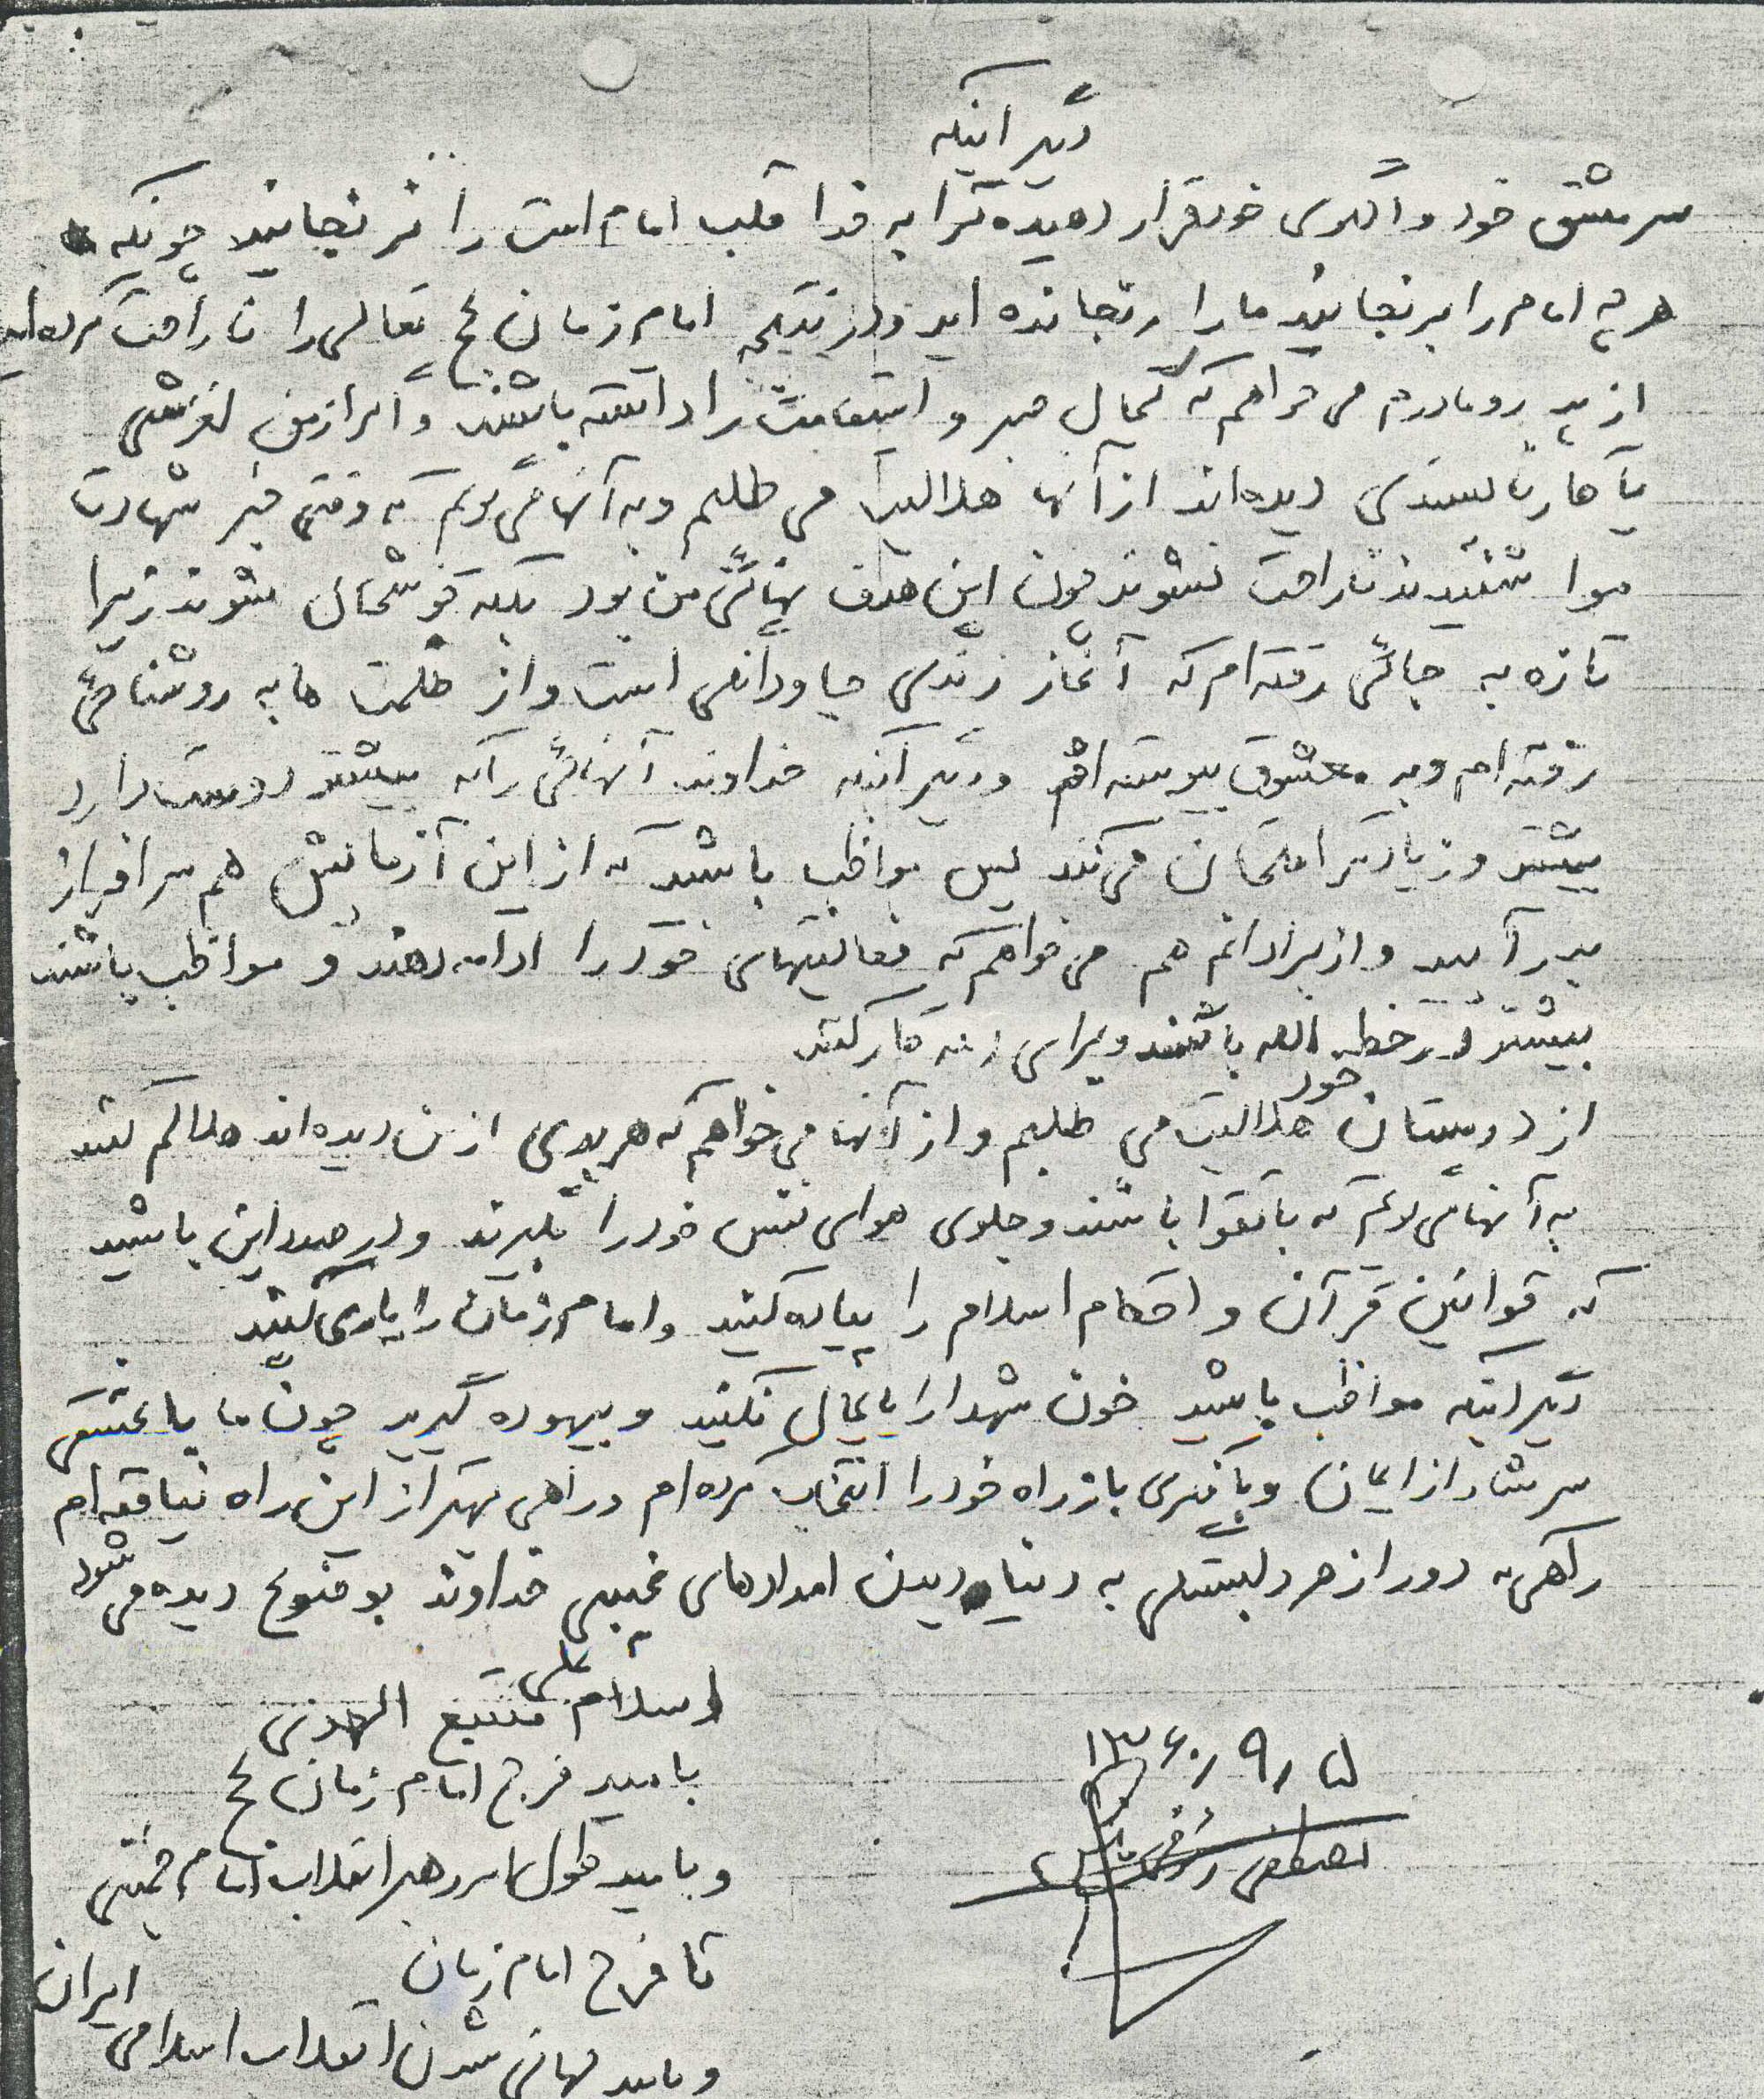 دیگر اینکه
سرمشق خود و الگوی خود قرار دهید شما را به خدا قلب امام امت را نرنجانید چونکه
هر چه امام را برنجانید ما را رنجانده اید و در نتیجه امام زمان عج تعالی را ناراحت کرده اید
از پدر و مادرم می خواهم که کمال صبر و استقامت را داشته باشند و اگر از من لغزشی
یا کار ناپسندی دیده اند از آنها حلالیت می طلبم و به آنها می گویم که وقتی خبر شهادت
مرا شنیدند ناراحت نشوند چون این هدف نهائی من بود بلکه خوشحال شوند زیرا
تازه به جائی رفته ام که آغاز زندگی جاودانی است و از ظلمت ها به روشنائی
رفته ام و به معشوق پیوسته ام و دیگر آنکه خداوند آنهائی را که بیشتر دوست دارد
بیشتر و زیادتر امتحان می کند پس مواظب باشید که از این آزمایش هم سرافراز
بدر آیید و از برادرانم هم می خواهم که فعالیتهای خود را ادامه دهند و مواظب باشند
بیشتر در خط الله باشند و برای کار کنند
از دوستان خود حلالیت می طلبم و از آنها می خواهم که هر بدی از من دیده اند حلالم کنند
به آنها می گویم که با تقوا باشند و جلوی هوای نفس خود را بگیرند و در صدد این باشید
که قوانین قرآن و احکام اسلام را پیاده کنید و امام زمان را یاری کنید
دیگر اینکه مواظب باشید خون شهدا را پایمال نکنید و بیهوده نگیرید چون ما با عشقی
سرشار از ایمان و با فکری باز راه خود را انتخاب کرده ام و راهی بهتر از این راه نیافته ام
راهی که دور از هر دلبستگی به دنیا و دیدن امدادهای غیبی خداوند بوضوح دیده می شود
والسلام علی من اتبع الهدی
بامید فرج امام زمان عج
و بامید طول عمر رهبر انقلاب امام خمینی
تا فرج امام زمان
و بامید جهانی شدن انقلاب اسلامی ایران
۱۳۶۰/۹/۵
مصطفی